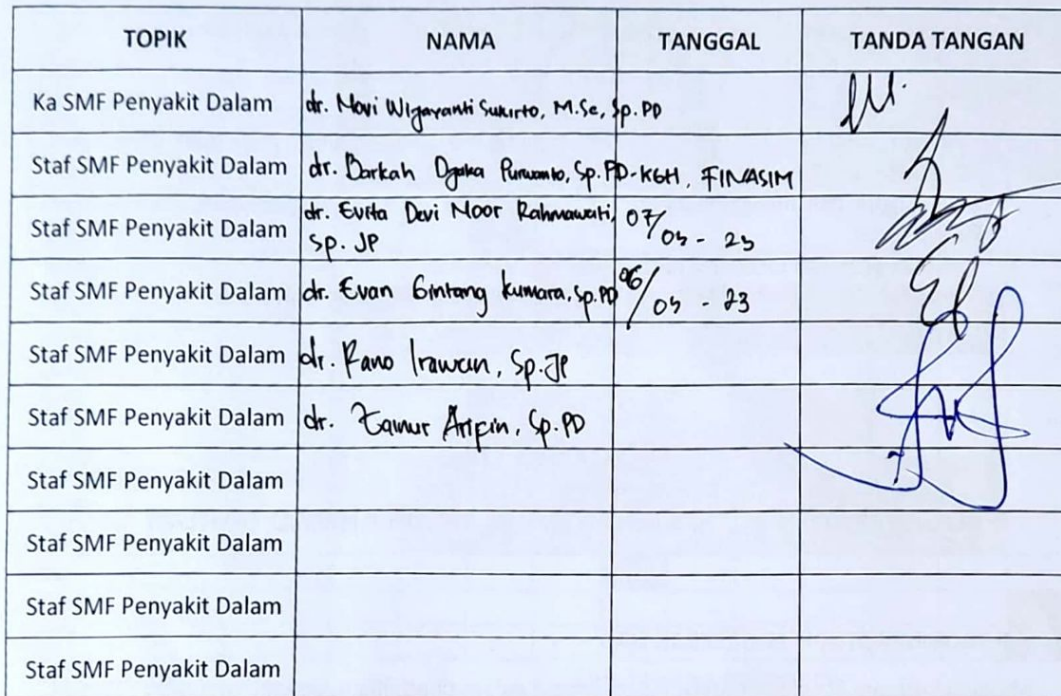 TOPIK NAMA TANGGAL TANDA TANGAN
Ka SMF Penyakit Dalam dr. Novi Wijayanti Sukirto, M.Sc, Sp.PD
Staf SMF Penyakit Dalam dr. Barkah Djaka Purwanto, Sp.PD-KGH, FINASIM
Staf SMF Penyakit Dalam dr. Evita Devi Noor Rahmawati, 07/03 - 23
Sp. JP
Staf SMF Penyakit Dalam dr. Evan Gintang Kumara, Sp.PD 06/03 - 23
Staf SMF Penyakit Dalam dr. Rano Irawan, Sp.JP
Staf SMF Penyakit Dalam dr. Zainur Arifin, Sp.PD
Staf SMF Penyakit Dalam
Staf SMF Penyakit Dalam
Staf SMF Penyakit Dalam
Staf SMF Penyakit Dalam